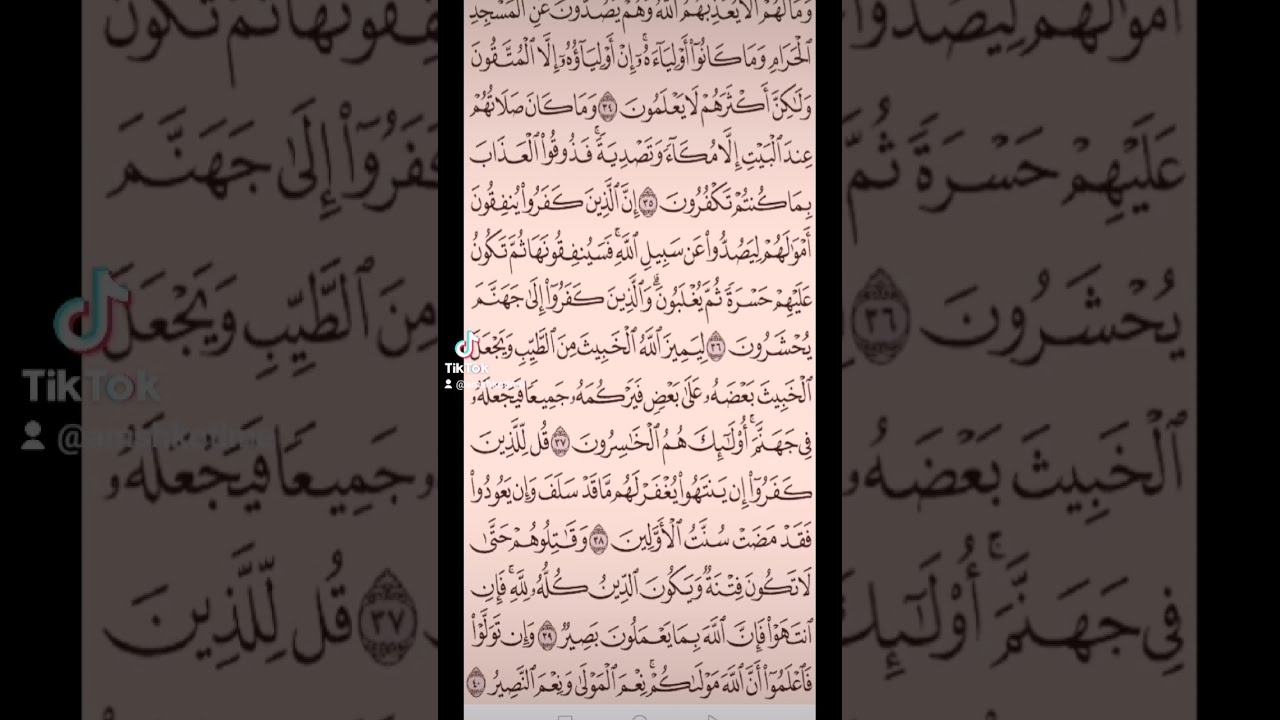 وَمَا لَهُمْ أَلَّا يُعَذِّبَهُمُ ٱللَّهُ وَهُمْ يَصُدُّونَ عَنِ ٱلْمَسْجِدِ
ٱلْحَرَامِ وَمَا كَانُوٓا۟ أَوْلِيَآءَهُۥٓ ۚ إِنْ أَوْلِيَآؤُهُۥٓ إِلَّا ٱلْمُتَّقُونَ
وَلَـٰكِنَّ أَكْثَرَهُمْ لَا يَعْلَمُونَ ٣٤ وَمَا كَانَ صَلَاتُهُمْ
عِندَ ٱلْبَيْتِ إِلَّا مُكَآءً وَتَصْدِيَةً ۚ فَذُوقُوا۟ ٱلْعَذَابَ
بِمَا كُنتُمْ تَكْفُرُونَ ٣٥ إِنَّ ٱلَّذِينَ كَفَرُوا۟ يُنفِقُونَ
أَمْوَٰلَهُمْ لِيَصُدُّوا۟ عَن سَبِيلِ ٱللَّهِ ۚ فَسَيُنفِقُونَهَا ثُمَّ تَكُونُ
عَلَيْهِمْ حَسْرَةً ثُمَّ يُغْلَبُونَ ۗ وَٱلَّذِينَ كَفَرُوٓا۟ إِلَىٰ جَهَنَّمَ
يُحْشَرُونَ ٣٦ لِيَمِيزَ ٱللَّهُ ٱلْخَبِيثَ مِنَ ٱلطَّيِّبِ وَيَجْعَلَ
ٱلْخَبِيثَ بَعْضَهُۥ عَلَىٰ بَعْضٍ فَيَرْكُمَهُۥ جَمِيعًا فَيَجْعَلَهُۥ
فِى جَهَنَّمَ ۚ أُو۟لَـٰٓئِكَ هُمُ ٱلْخَـٰسِرُونَ ٣٧ قُل لِّلَّذِينَ
كَفَرُوٓا۟ إِن يَنتَهُوا۟ يُغْفَرْ لَهُم مَّا قَدْ سَلَفَ وَإِن يَعُودُوا۟
فَقَدْ مَضَتْ سُنَّتُ ٱلْأَوَّلِينَ ٣٨ وَقَـٰتِلُوهُمْ حَتَّىٰ
لَا تَكُونَ فِتْنَةٌ وَيَكُونَ ٱلدِّينُ كُلُّهُۥ لِلَّهِ ۚ فَإِنِ
ٱنتَهَوْا۟ فَإِنَّ ٱللَّهَ بِمَا يَعْمَلُونَ بَصِيرٌ ٣٩ وَإِن تَوَلَّوْا۟
فَٱعْلَمُوٓا۟ أَنَّ ٱللَّهَ مَوْلَىٰكُمْ ۚ نِعْمَ ٱلْمَوْلَىٰ وَنِعْمَ ٱلنَّصِيرُ ٤٠
TikTok